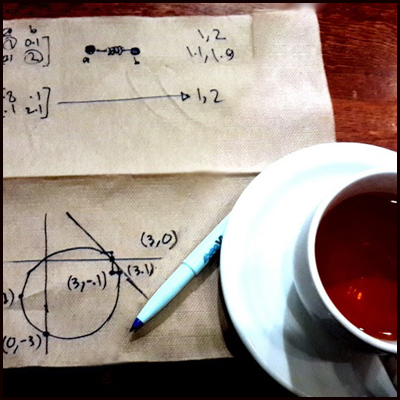 a b
② 0.1
.1 ②
a b
1, 2
1.1, 1.9
.1
.1 2.1
1, 2
(3,0)
(3,-.1)
(3.1)
(0,-3)